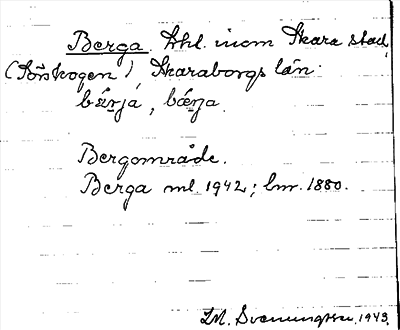 Berga. khl. inom Skara stad,
(Börskogen) Skaraborgs län.
bǽrjá, bǽrja.
Bergområde.
Berga ml. 1942; lm. 1880.
I.M. Svenungsson. 1943.